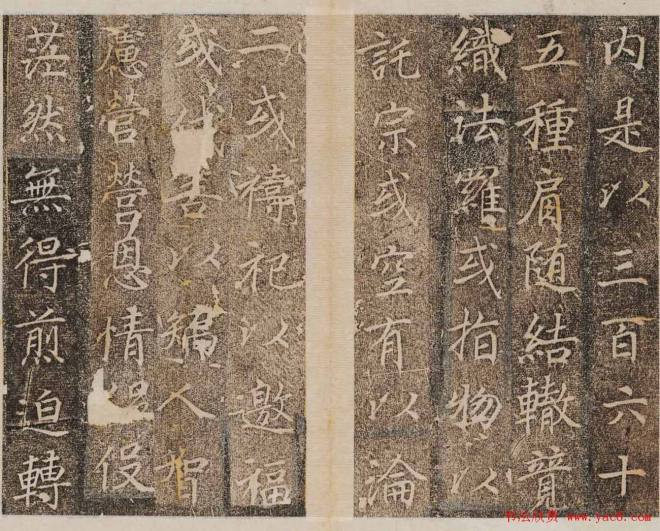 内是以三百六十
五種肩随結轍競
織法羅或指物以
託宗或空有以淪
二或禱祀以邀福
或伐善以矯人智
慮營營恩情役役
茫然無得煎迫轉
书法欣赏 www.yac8.com